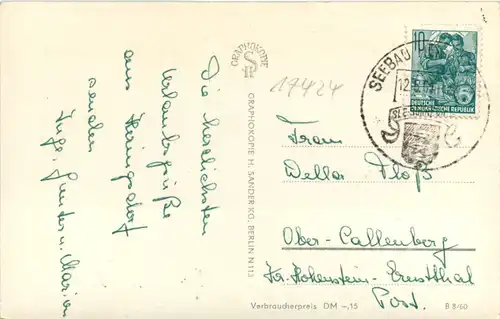 Die herzlichsten
Urlaubsgrüße
aus Heringsdorf
senden
Inge, Gunter u. Marion
GRAPHOKOPIE
H
S
GRAPHOKOPIE H. SANDER KG, BERLIN N 113
17424
10
DEUTSCHE
DEMOKRATISCHE REPUBLIK
SEEBAD
12.
Frau
Ploß
Ober-Callenberg
Kr. Hohenstein-Ernstthal
Post.
Verbraucherpreis DM –,15
B 3/60